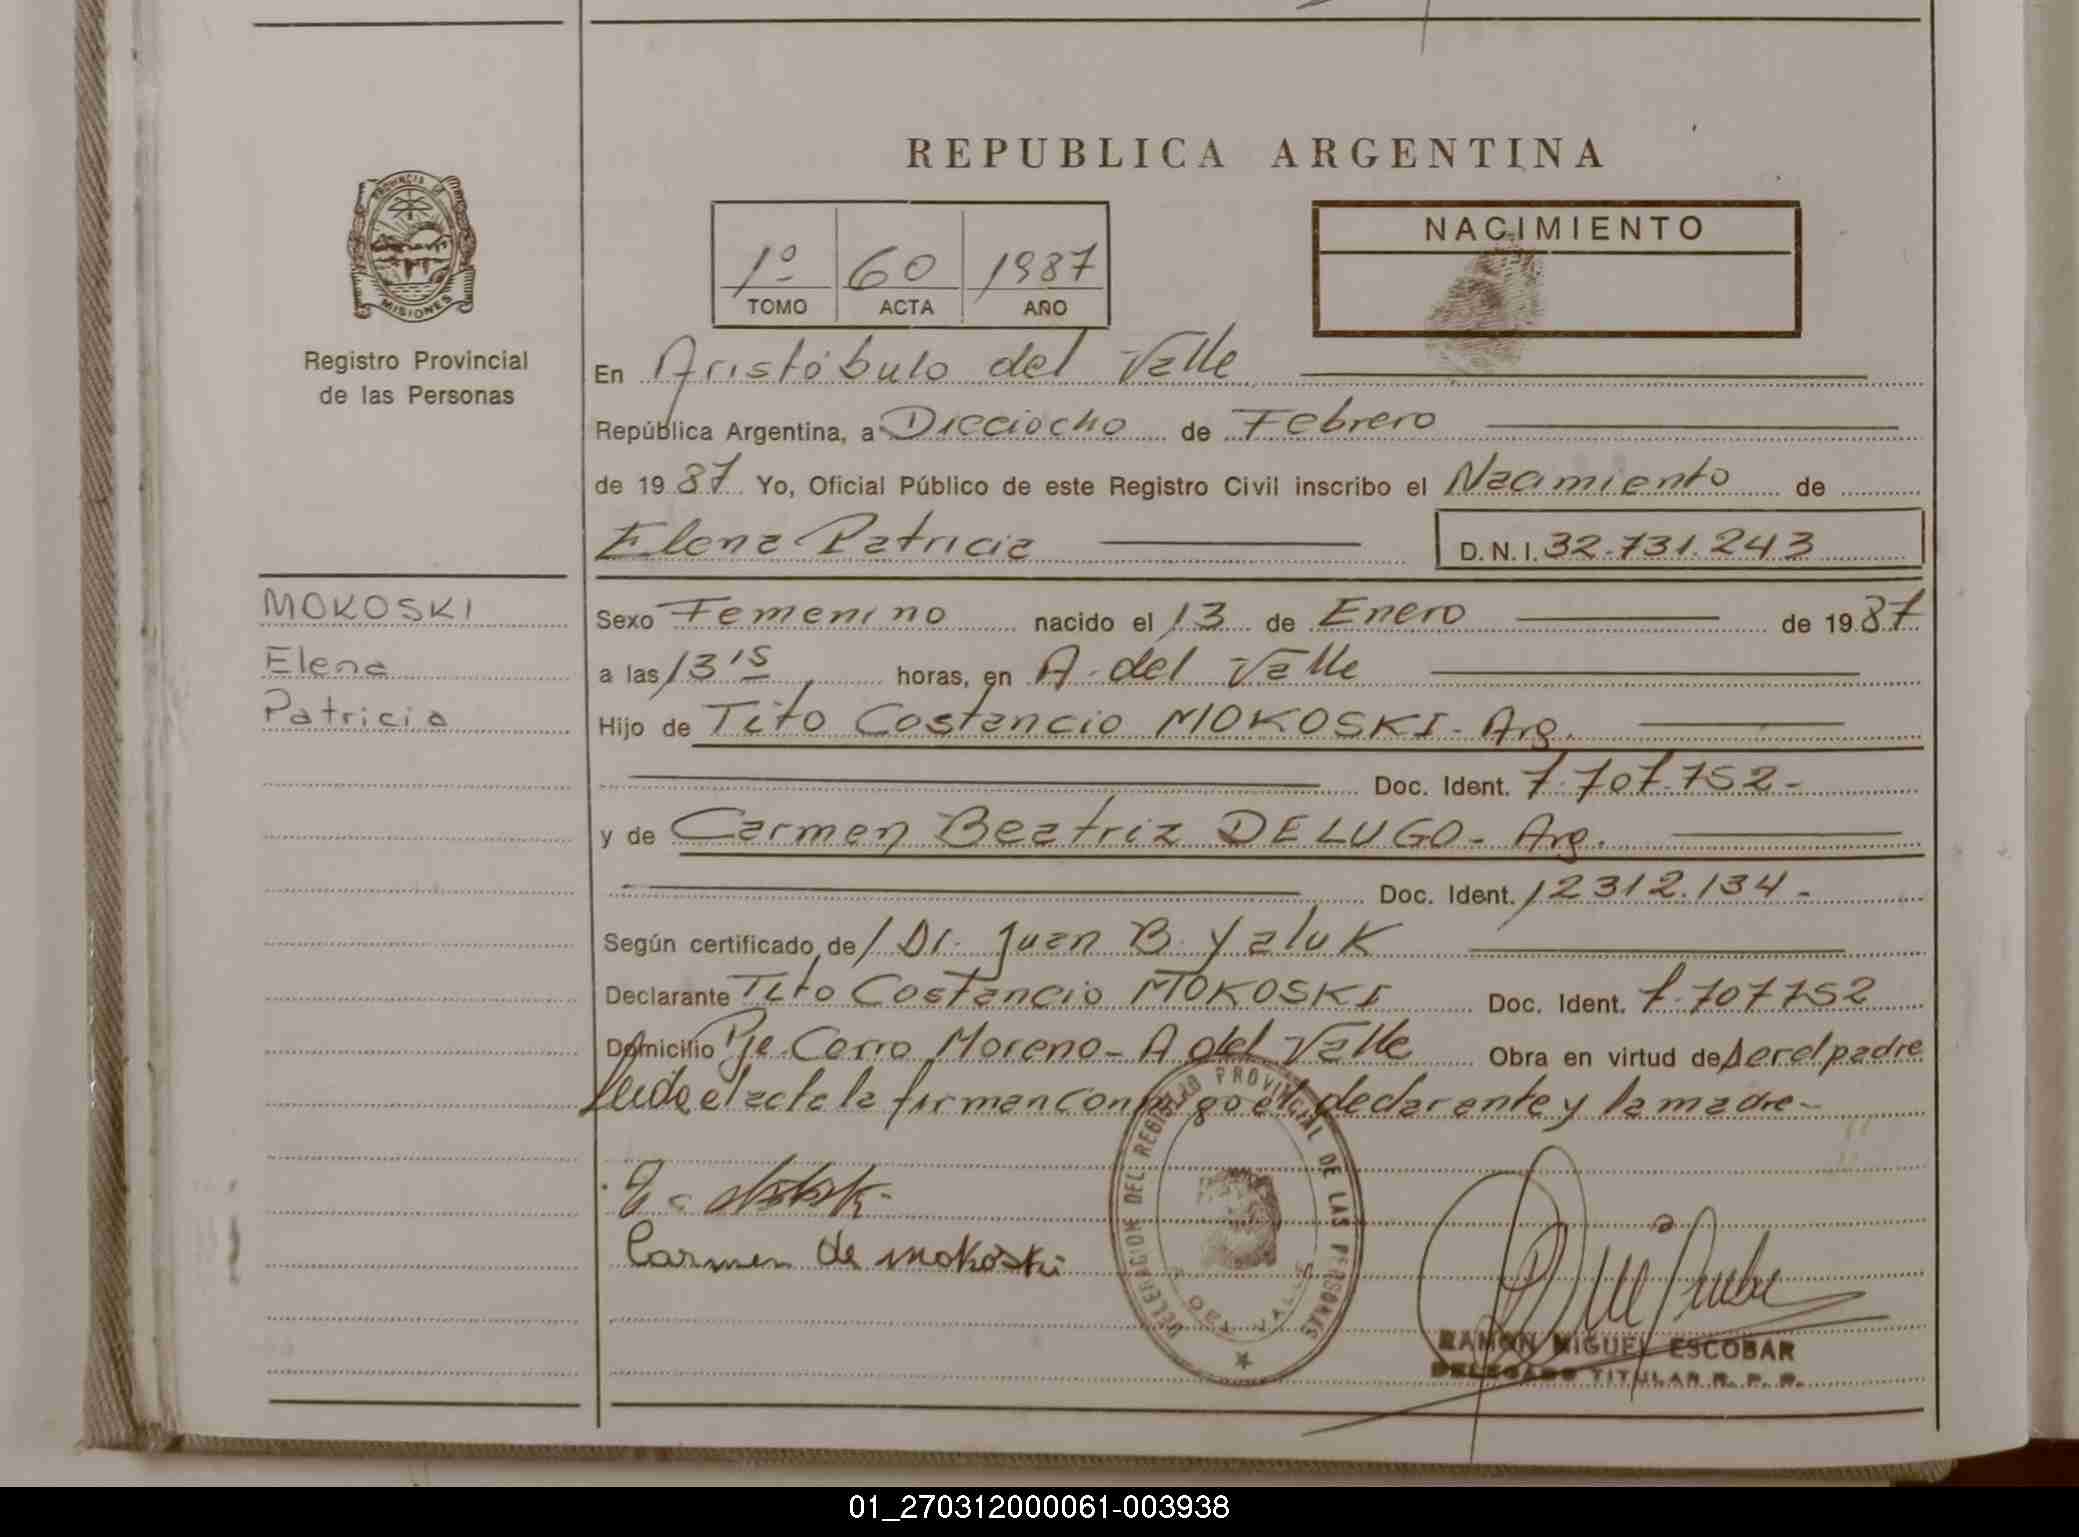 REPUBLICA ARGENTINA
PROVINCIA DE
MISIONES
Registro Provincial
de las Personas
1º 60 1987
TOMO ACTA AÑO
NACIMIENTO
En Aristóbulo del Valle
República Argentina, a Dieciocho de Febrero
de 1987 Yo, Oficial Público de este Registro Civil inscribo el Nacimiento de
Elena Patricia D.N.I. 32.731.243
MOKOSKI
Elena
Patricia
Sexo Femenino nacido el 13 de Enero de 1987
a las 13 15 horas, en A. del Valle
Hijo de Tito Costancio MOKOSKI - Arg.
Doc. Ident. 7.707.752-
y de Carmen Beatriz DELUGO - Arg.
Doc. Ident. 12312.134-
Según certificado de/ Dr. Juan B. Yaluk
Declarante Tito Costancio MOKOSKI Doc. Ident. 7.707752
Domicilio Pje. Cerro Moreno - A del Valle Obra en virtud de ser el padre
leida el acta la firman conmigo el declarante y la madre-
Carmen de mokoski
DELEGACION DEL REGISTRO PROVINCIAL DE LAS PERSONAS
VALLE
RAMON MIGUEL ESCOBAR
DELEGADO TITULAR R. P. P.
01_270312000061-003938